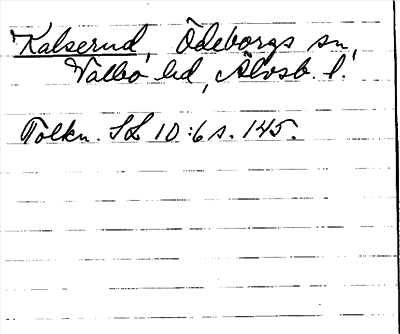 Kalserud, Ödeborgs sn,
Valbo hd, Älvsb. l.
Tolkn. SL 10:6 s. 145.